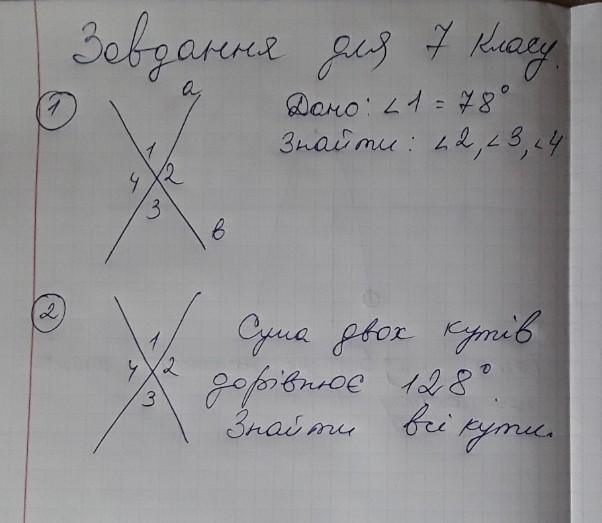 Завдання для 7 класу.
1
a
Дано: ∠1 = 78°
Знайти: ∠2, ∠3, ∠4
1
4 2
3
в
2
Сума двох кутів
дорівнює 128°.
Знайти всі кути.
1
4 2
3